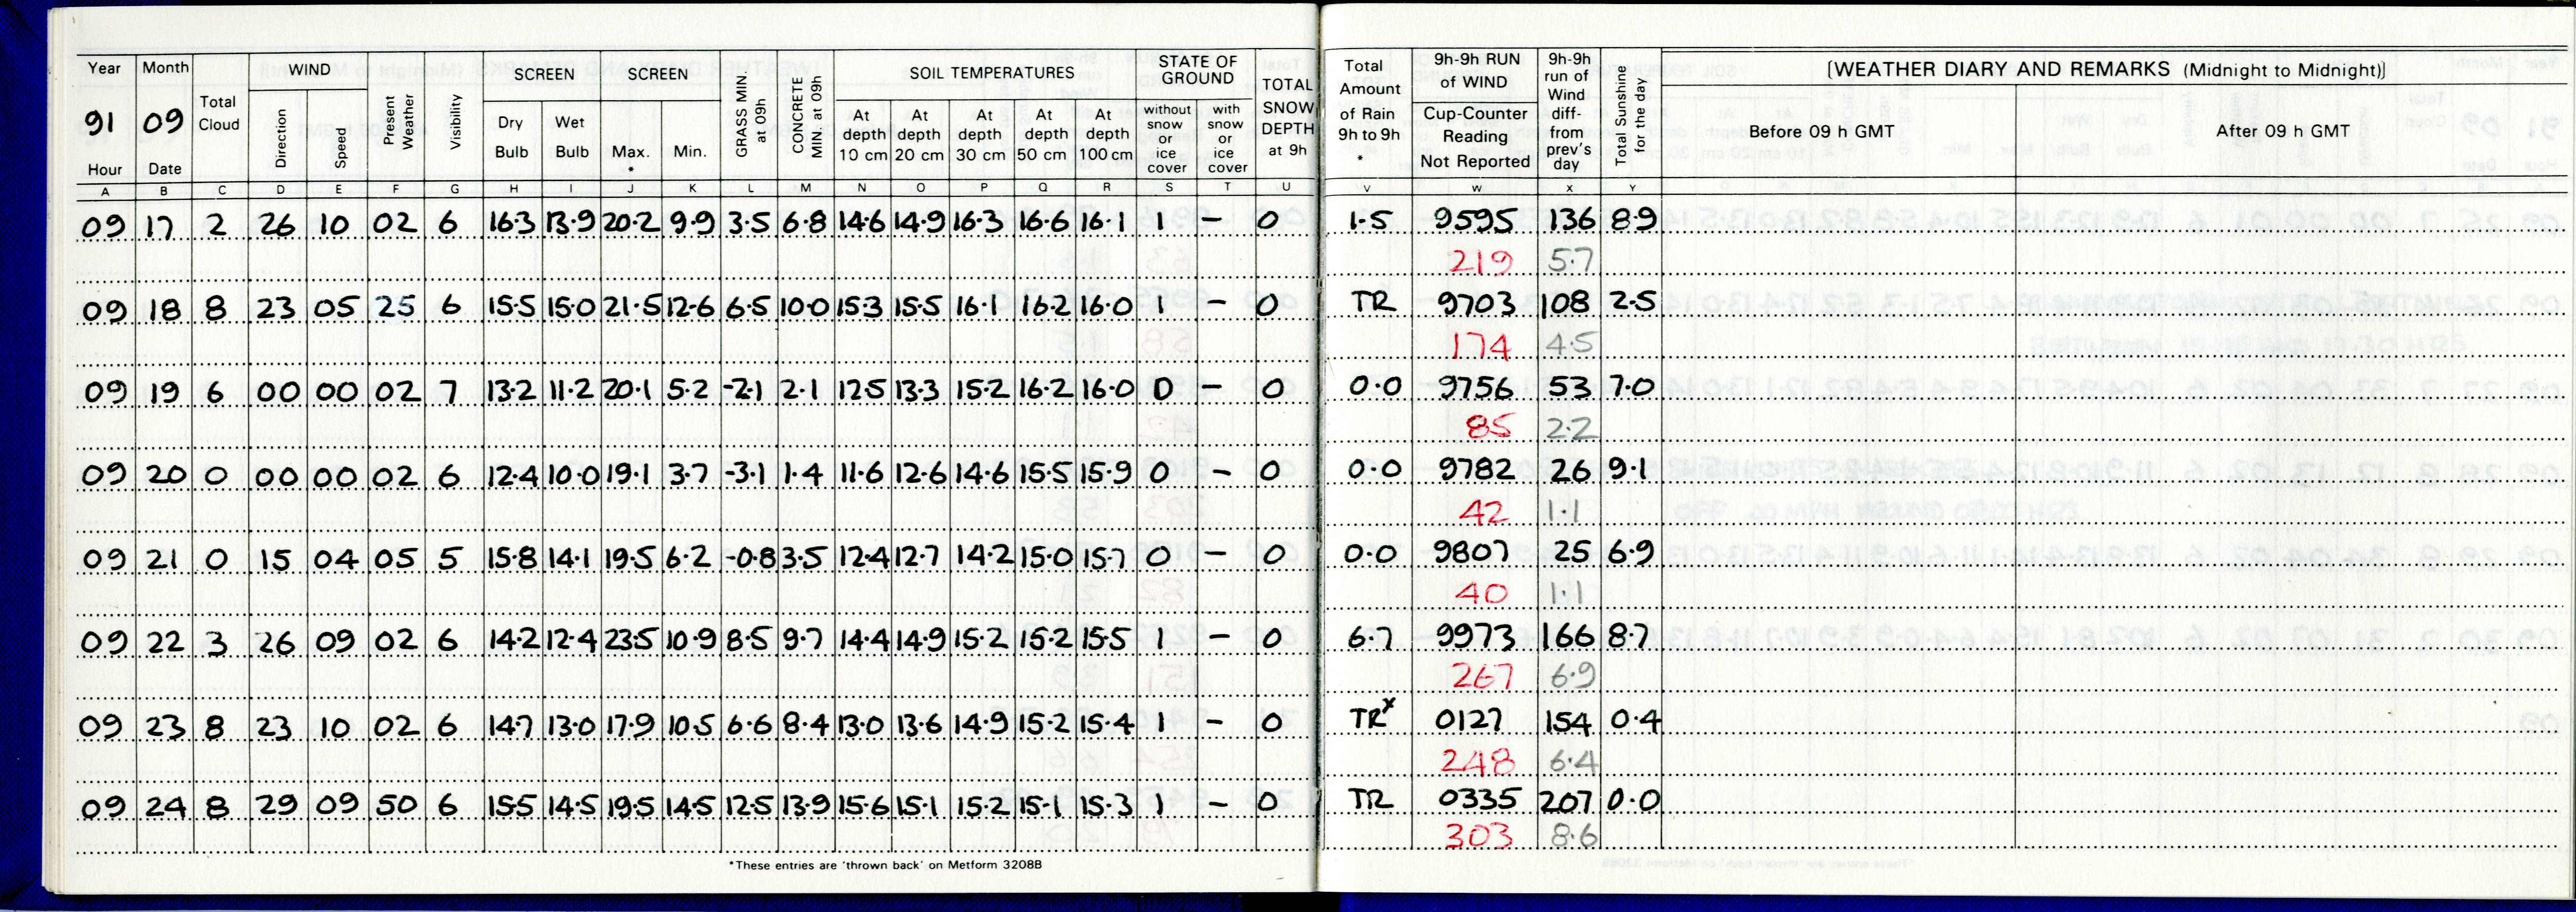 Year Month Total Cloud WIND Present Weather Visibility SCREEN SCREEN GRASS MIN. at 09h CONCRETE MIN. at 09h SOIL TEMPERATURES STATE OF GROUND TOTAL SNOW DEPTH at 9h Total Amount of Rain 9h to 9h * 9h-9h RUN of WIND 9h-9h run of Wind diff- from prev's day Total Sunshine for the day [WEATHER DIARY AND REMARKS (Midnight to Midnight)]
91 09 Direction Speed Dry Bulb Wet Bulb Max. * Min. At depth 10 cm At depth 20 cm At depth 30 cm At depth 50 cm At depth 100 cm without snow or ice cover with snow or ice cover Cup-Counter Reading Not Reported Before 09 h GMT After 09 h GMT
Hour Date
A B C D E F G H I J K L M N O P Q R S T U V W X Y
09 17 2 26 10 02 6 16.3 13.9 20.2 9.9 3.5 6.8 14.6 14.9 16.3 16.6 16.1 1 – 0 1.5 9595 136 8.9
219 5.7
09 18 8 23 05 25 6 15.5 15.0 21.5 12.6 6.5 10.0 15.3 15.5 16.1 16.2 16.0 1 – 0 TR 9703 108 2.5
174 4.5
09 19 6 00 00 02 7 13.2 11.2 20.1 5.2 -2.1 2.1 12.5 13.3 15.2 16.2 16.0 0 – 0 0.0 9756 53 7.0
85 2.2
09 20 0 00 00 02 6 12.4 10.0 19.1 3.7 -3.1 1.4 11.6 12.6 14.6 15.5 15.9 0 – 0 0.0 9782 26 9.1
42 1.1
09 21 0 15 04 05 5 15.8 14.1 19.5 6.2 -0.8 3.5 12.4 12.7 14.2 15.0 15.7 0 – 0 0.0 9807 25 6.9
40 1.1
09 22 3 26 09 02 6 14.2 12.4 23.5 10.9 8.5 9.7 14.4 14.9 15.2 15.2 15.5 1 – 0 6.7 9973 166 8.7
267 6.9
09 23 8 23 10 02 6 14.7 13.0 17.9 10.5 6.6 8.4 13.0 13.6 14.9 15.2 15.4 1 – 0 TRx 0127 154 0.4
248 6.4
09 24 8 29 09 50 6 15.5 14.5 19.5 14.5 12.5 13.9 15.6 15.1 15.2 15.1 15.3 1 – 0 TR 0335 207 0.0
303 8.6
*These entries are 'thrown back' on Metform 3208B